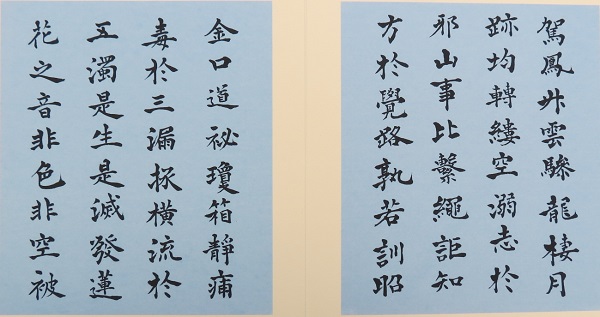 駕鳳升雲驂龍棲月
跡均轉縷空溺志於
邪山事比繫繩詎知
方於覺路孰若訓昭
金口道祕瓊箱靜痡
毒於三漏拯橫流於
五濁是生是滅發蓮
花之音非色非空被